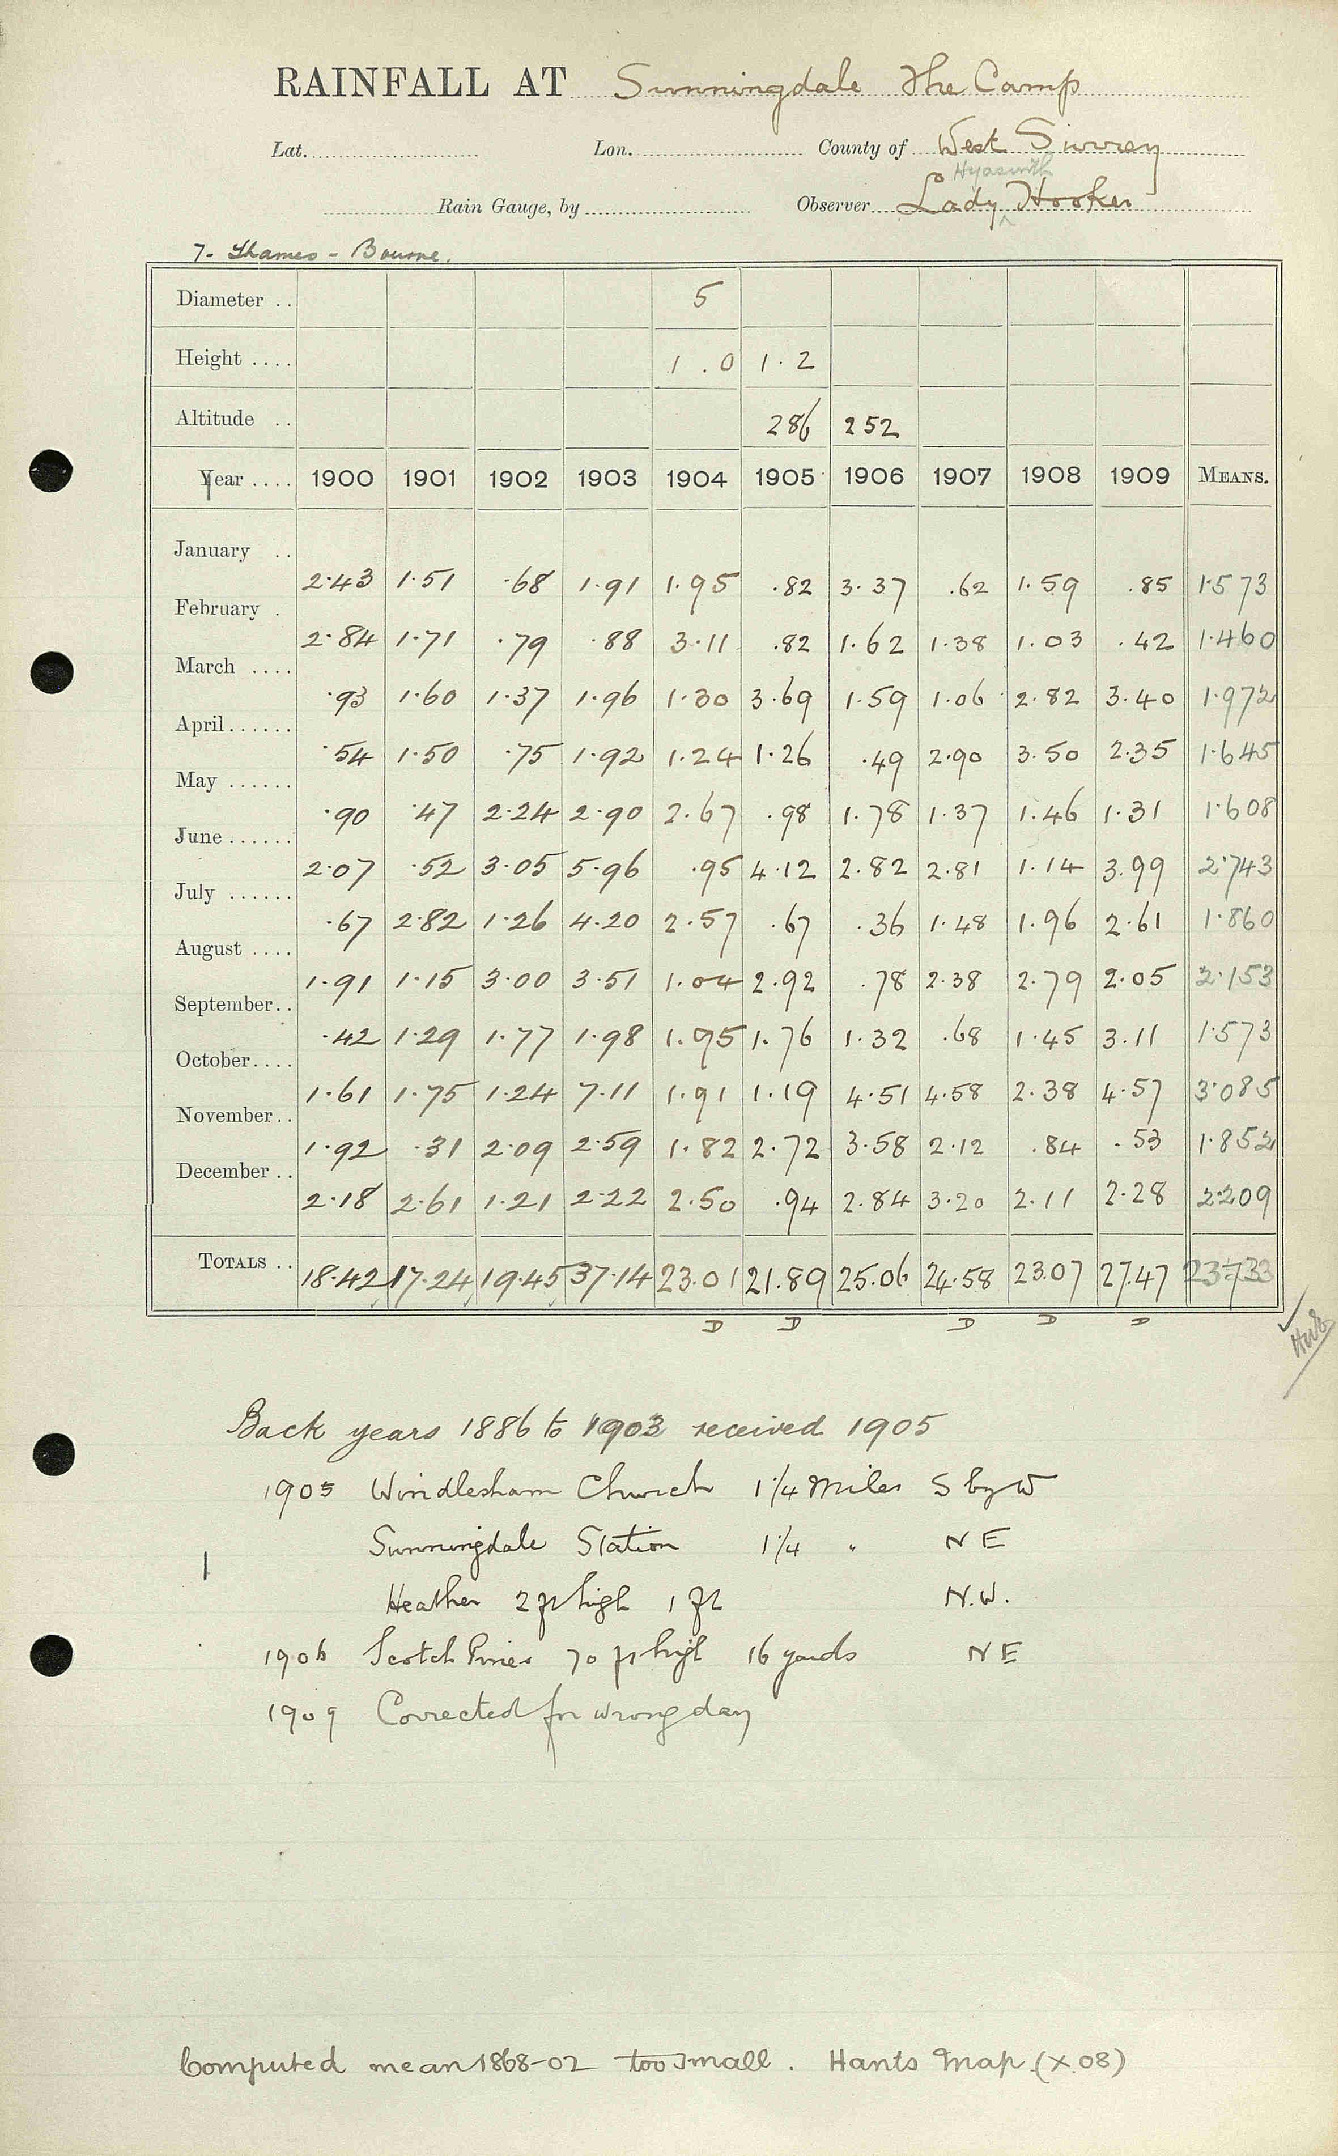 RAINFALL AT Sunningdale The Camp
Lat. Lon. County of West Surrey
Hyacinth
Rain Gauge, by Observer Lady ^ Hooker
7. Thames - Bourne.
Diameter .. 5
Height .... 1.0 1.2
Altitude .. 286 252
Year .... 1900 1901 1902 1903 1904 1905 1906 1907 1908 1909 MEANS.
January .. 2.43 1.51 .68 1.91 1.95 .82 3.37 .62 1.59 .85 1.573
February . 2.84 1.71 .79 .88 3.11 .82 1.62 1.38 1.03 .42 1.460
March .... .93 1.60 1.37 1.96 1.30 3.69 1.59 1.06 2.82 3.40 1.972
April...... .54 1.50 .75 1.92 1.24 1.26 .49 2.90 3.50 2.35 1.645
May ...... .90 .47 2.24 2.90 2.67 .98 1.78 1.37 1.46 1.31 1.608
June...... 2.07 .52 3.05 5.96 .95 4.12 2.82 2.81 1.14 3.99 2.743
July ...... .67 2.82 1.26 4.20 2.57 .67 .36 1.48 1.96 2.61 1.860
August .... 1.91 1.15 3.00 3.51 1.04 2.92 .78 2.38 2.79 2.05 2.153
September.. .42 1.29 1.77 1.98 1.95 1.76 1.32 .68 1.45 3.11 1.573
October.... 1.61 1.75 1.24 7.11 1.91 1.19 4.51 4.58 2.38 4.57 3.085
November.. 1.92 .31 2.09 2.59 1.82 2.72 3.58 2.12 .84 .53 1.852
December .. 2.18 2.61 1.21 2.22 2.50 .94 2.84 3.20 2.11 2.28 2.209
TOTALS .. 18.42 17.24 19.45 37.14 23.01 21.89 25.06 24.58 23.07 27.47 23.733
D D D D D
Back years 1886 to 1903 received 1905
1905 Windlesham Church 1 1/4 Miles S by W
Sunningdale Station 1 1/4 " NE
Heather 2 ft high 1 ft N.W.
1906 Scotch Pines 70 ft high 16 yards NE
1909 Corrected for wrong day
Computed mean 1868-02 too small. Hants Map (x.08)